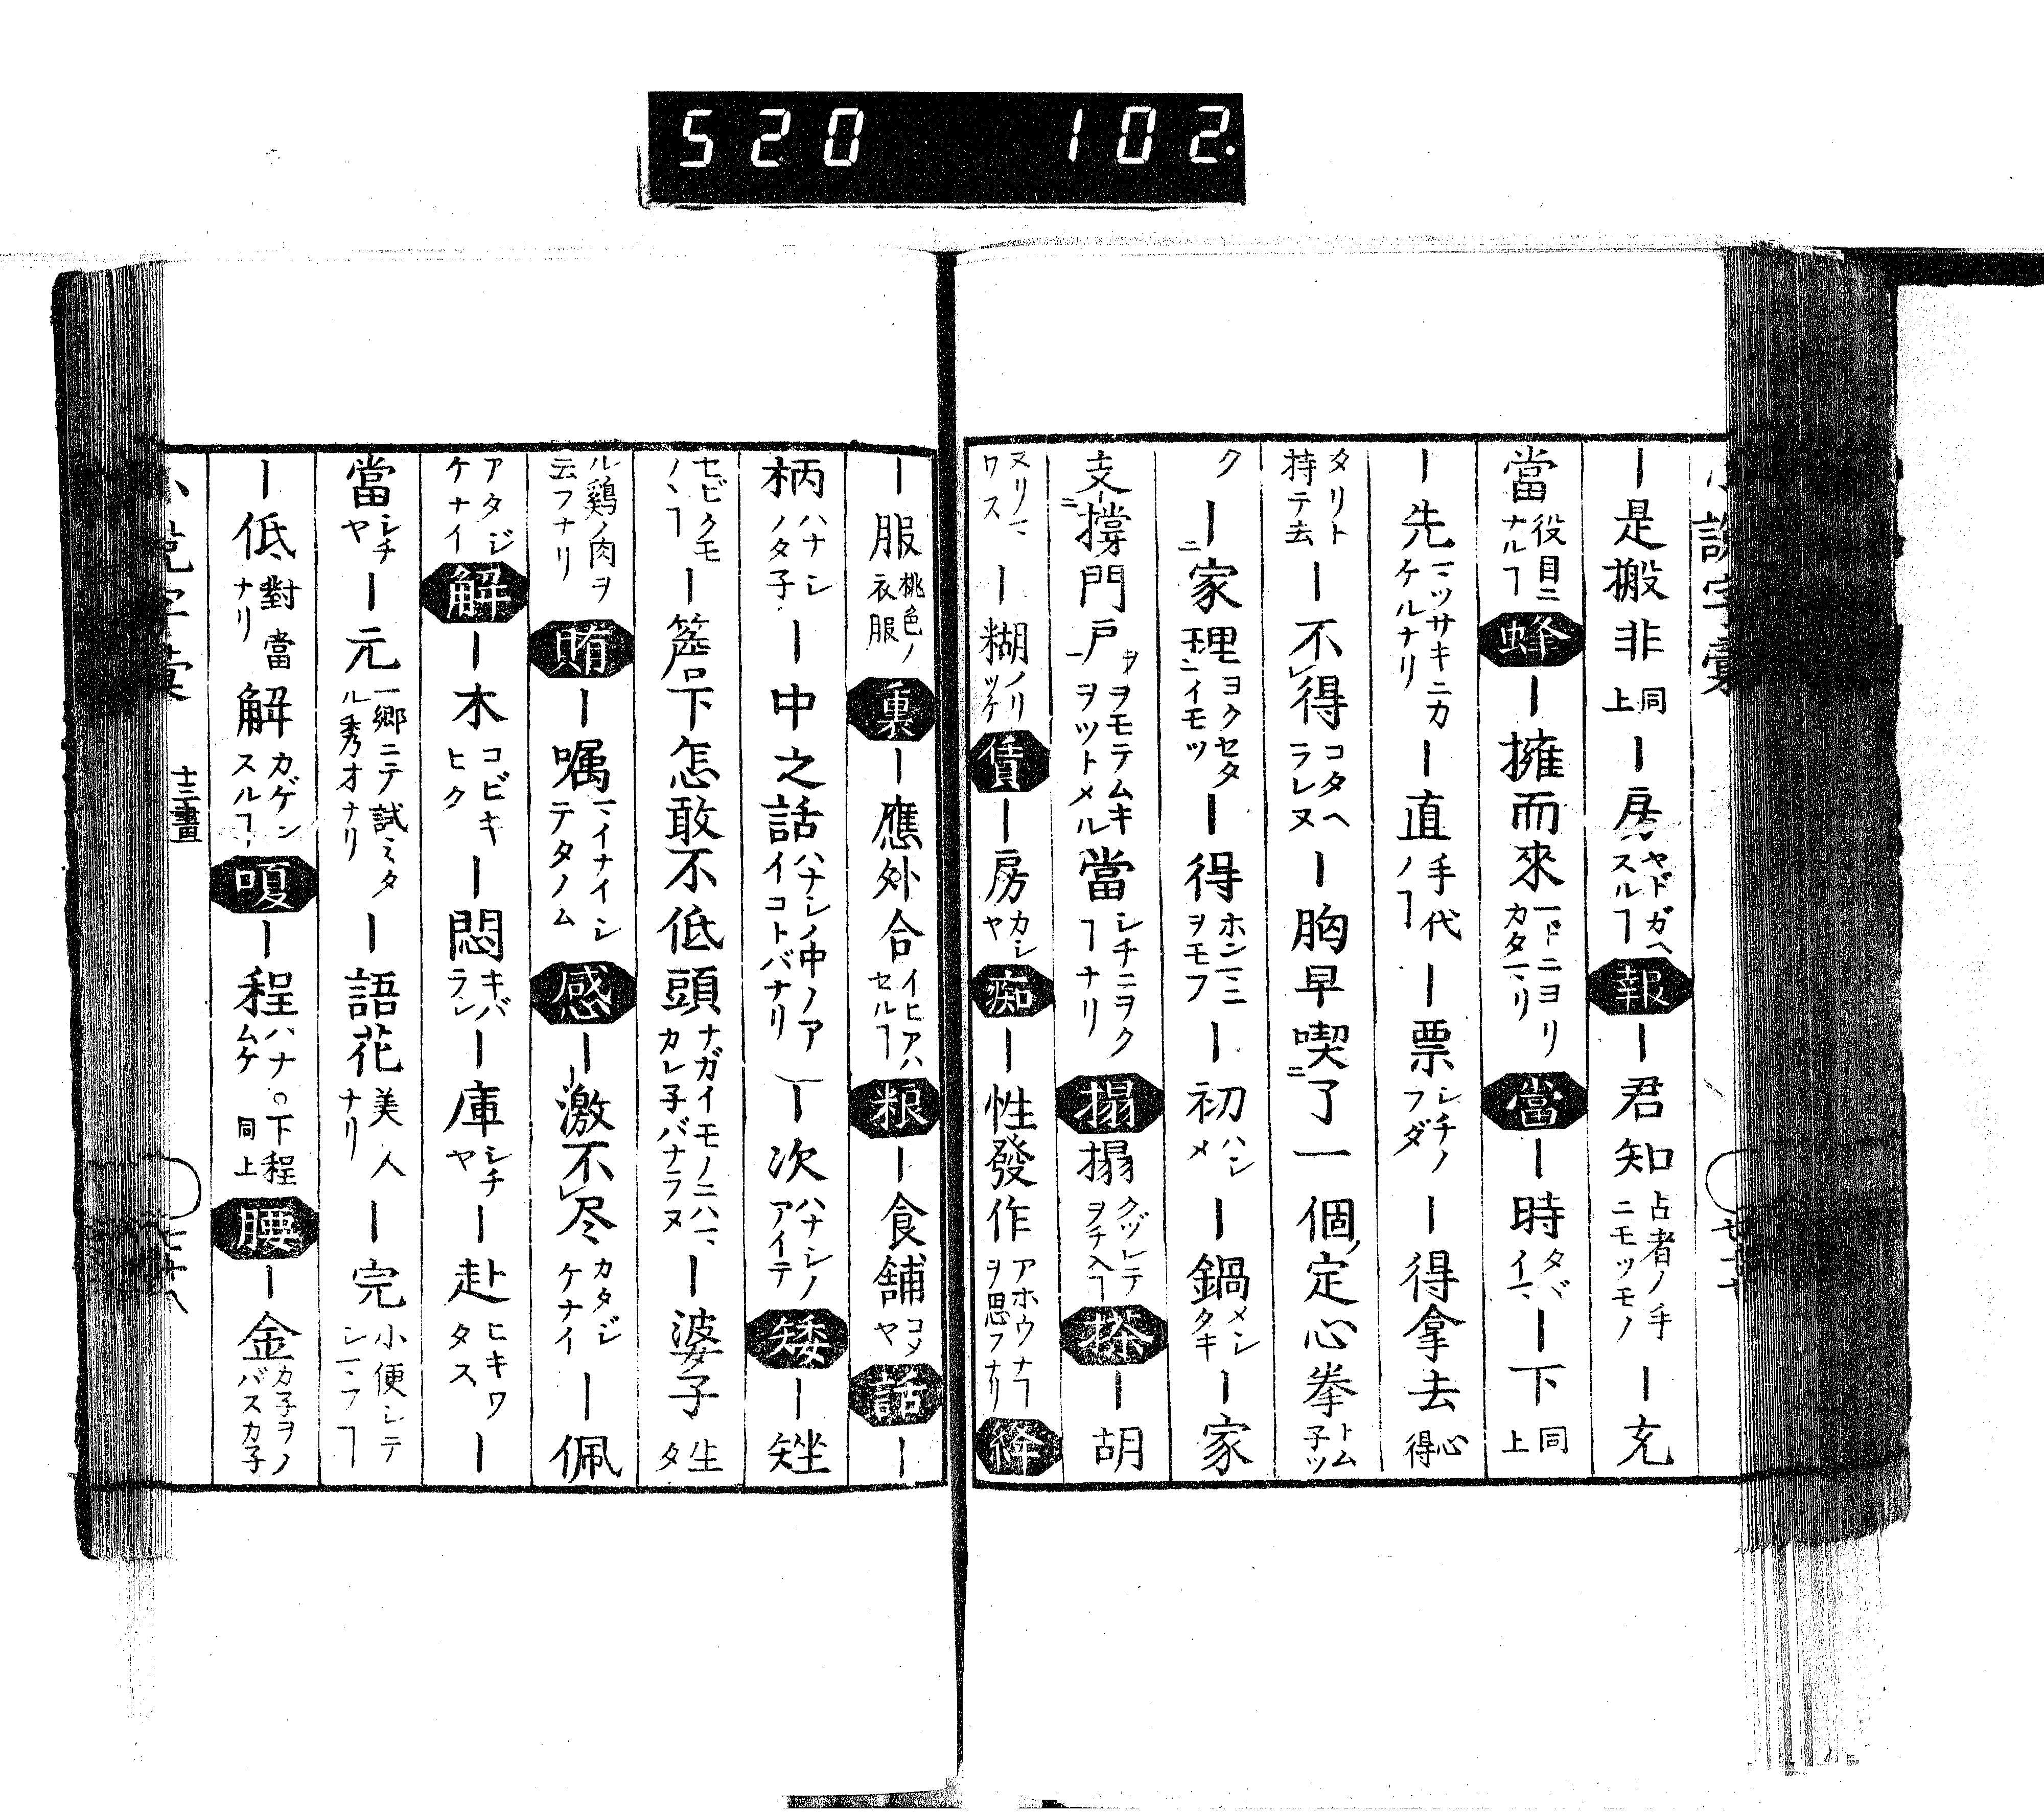 520 102.
小說字彙
｜是搬非 同上 ｜房 ヤドガヘスルヿ 報 ｜君知 占者ノ手ニモツモノ ｜充
當 役目ニナルヿ 蜂 ｜擁而來 一ドニヨリカタマリ 當 ｜時 タヾイマ ｜下 同上
｜先 マツサキニカケルナリ ｜直 手代ノヿ ｜票 シチノフダ ｜得拿去 心得
タリト持テ去 ｜不得 コタヘラレヌ ｜胸早喫了一個定心拳 トムネツ
ク ｜家理 ヨクセタイモツ ｜得 ホンマニヲモフ ｜初 ハンメ ｜鍋 メシタキ ｜家
支撐門戶 ヲモテムキヲツトメル 當 シチニヲクヿナリ 搨 搨 クヅレテヲチ入ヿ 搽 ｜胡
ヌリマワス ｜糊 ノリツケ 賃 ｜房 カシヤ 痴 ｜性發作 アホウナヿヲ思フナリ 絳
｜服 桃色ノ衣服 裏 ｜應外合 イヒアハセルヿ 粮 ｜食舖 コメヤ 話 ｜
柄 ハナシノタ子 ｜中之話 ハナシノ中ノアイコトバナリ ｜次 ハナシノアイテ 矮 ｜矬
セビクモノヽヿ ｜簷下怎敢不低頭 ナガイモノニハマカレ子バナラヌ ｜婆子 生タ
ル鷄ノ肉ヲ云フナリ 賄 ｜囑 マイナイシテタノム 感 ｜激不尽 カタジケナイ ｜佩
アタジケナイ 解 ｜木 コビキヒク ｜悶 キバラシ ｜庫 シチヤ ｜赴 ヒキワタス ｜
當 シチヤ ｜元 一鄉ニテ試ミタル秀才ナリ ｜語花 美人ナリ ｜完 小便シテシマフヿ
｜低 對當ナリ 解 カゲンスルヿ 嗄 ｜程 ハナムケ。下程同上 腰 ｜金 カ子ヲノバスカ子
小說字彙 十三畫